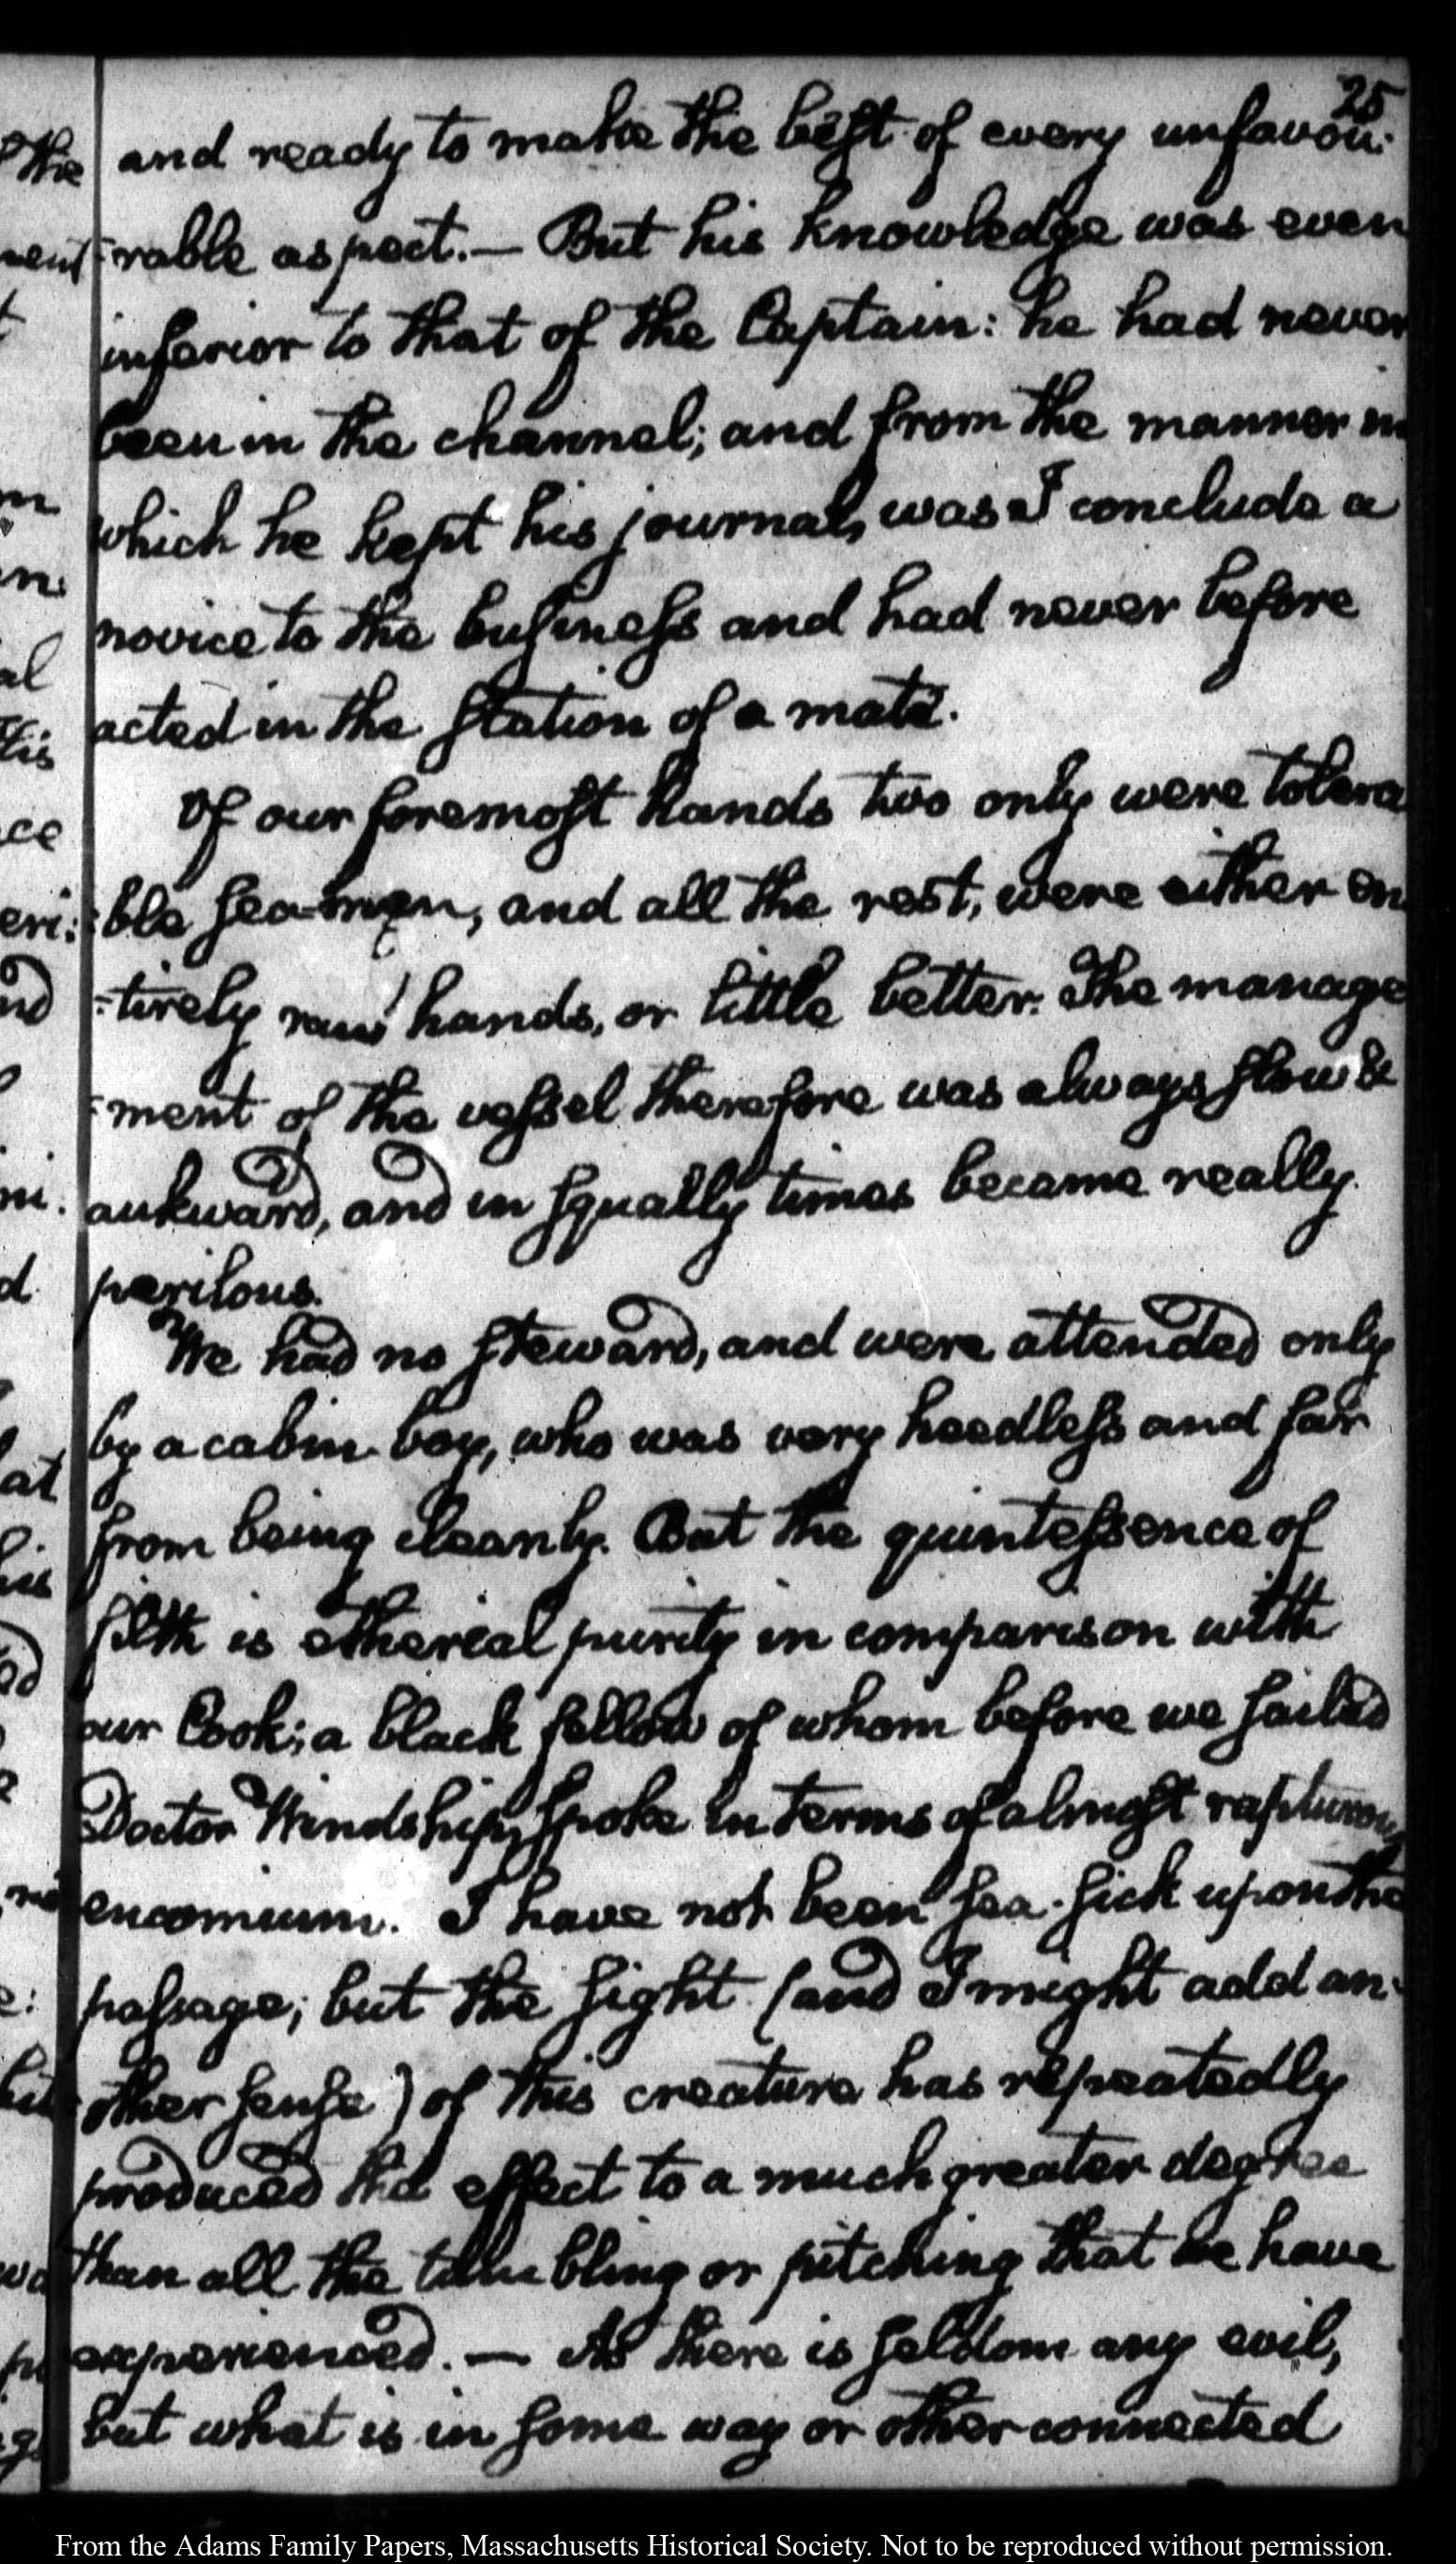 25
and ready to make the best of every unfavou-
-rable aspect.— But his knowledge was even
inferior to that of the Captain: he had never
been in the channel; and from the manner in
which he kept his journal, was I conclude a
novice to the business and had never before
acted in the station of a mate.
Of our foremost hands two only were tolera
-ble sea-men, and all the rest, were either en
-tirely raw hands, or little better. The manage
-ment of the vessel therefore was always slow &
aukward, and in squally times became really
perilous.
We had no steward, and were attended only
by a cabin boy, who was very heedless and far
from being cleanly. But the quintessence of
filth is ethereal purity in comparison with
our Cook; a black fellow of whom before we sailed
Doctor Windship, spoke in terms of almost rapturous
encomium. I have not been sea-sick upon the
passage; but the sight (and I might add an-
other sense) of this creature has repeatedly
produced the effect to a much greater degree
than all the tumbling or pitching that we have
experienced.— As there is seldom any evil,
but what is in some way or other connected
From the Adams Family Papers, Massachusetts Historical Society. Not to be reproduced without permission.